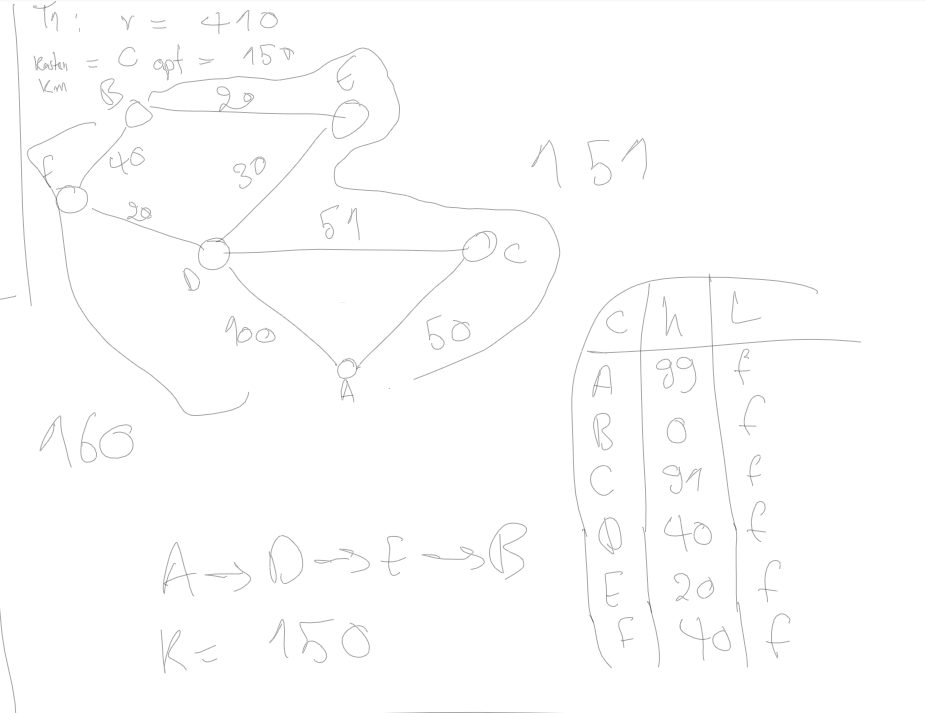 T1: r = 410
Kosten = C opt = 150
Km
B
20
E
F
40
30
151
20
51
D
C
100
50
A
160
C h L
A 99 f
B 0 f
C 91 f
D 40 f
E 20 f
F 40 f
A → D → E → B
K = 150